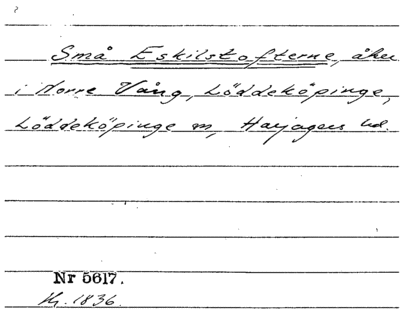 Små Eskilstofterne, åker
i Norre Vång, Löddeköpinge,
Löddeköpinge sn, Harjagers hd.
Nr 5617.
1836.